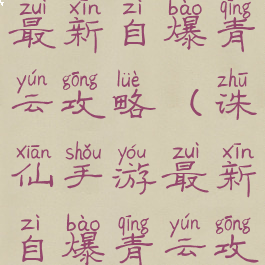 zuì xīn zì bào qīng
最新自爆青
yún gōng lüè zhū
云攻略（诛
xiān shǒu yóu zuì xīn
仙手游最新
zì bào qīng yún gōng
自爆青云攻